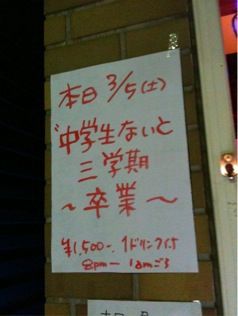 本日 3/5(土)
"中学生ないと
三学期
~卒業~
¥1,500-. 1ドリンクイナ
8pm- 1amごろ